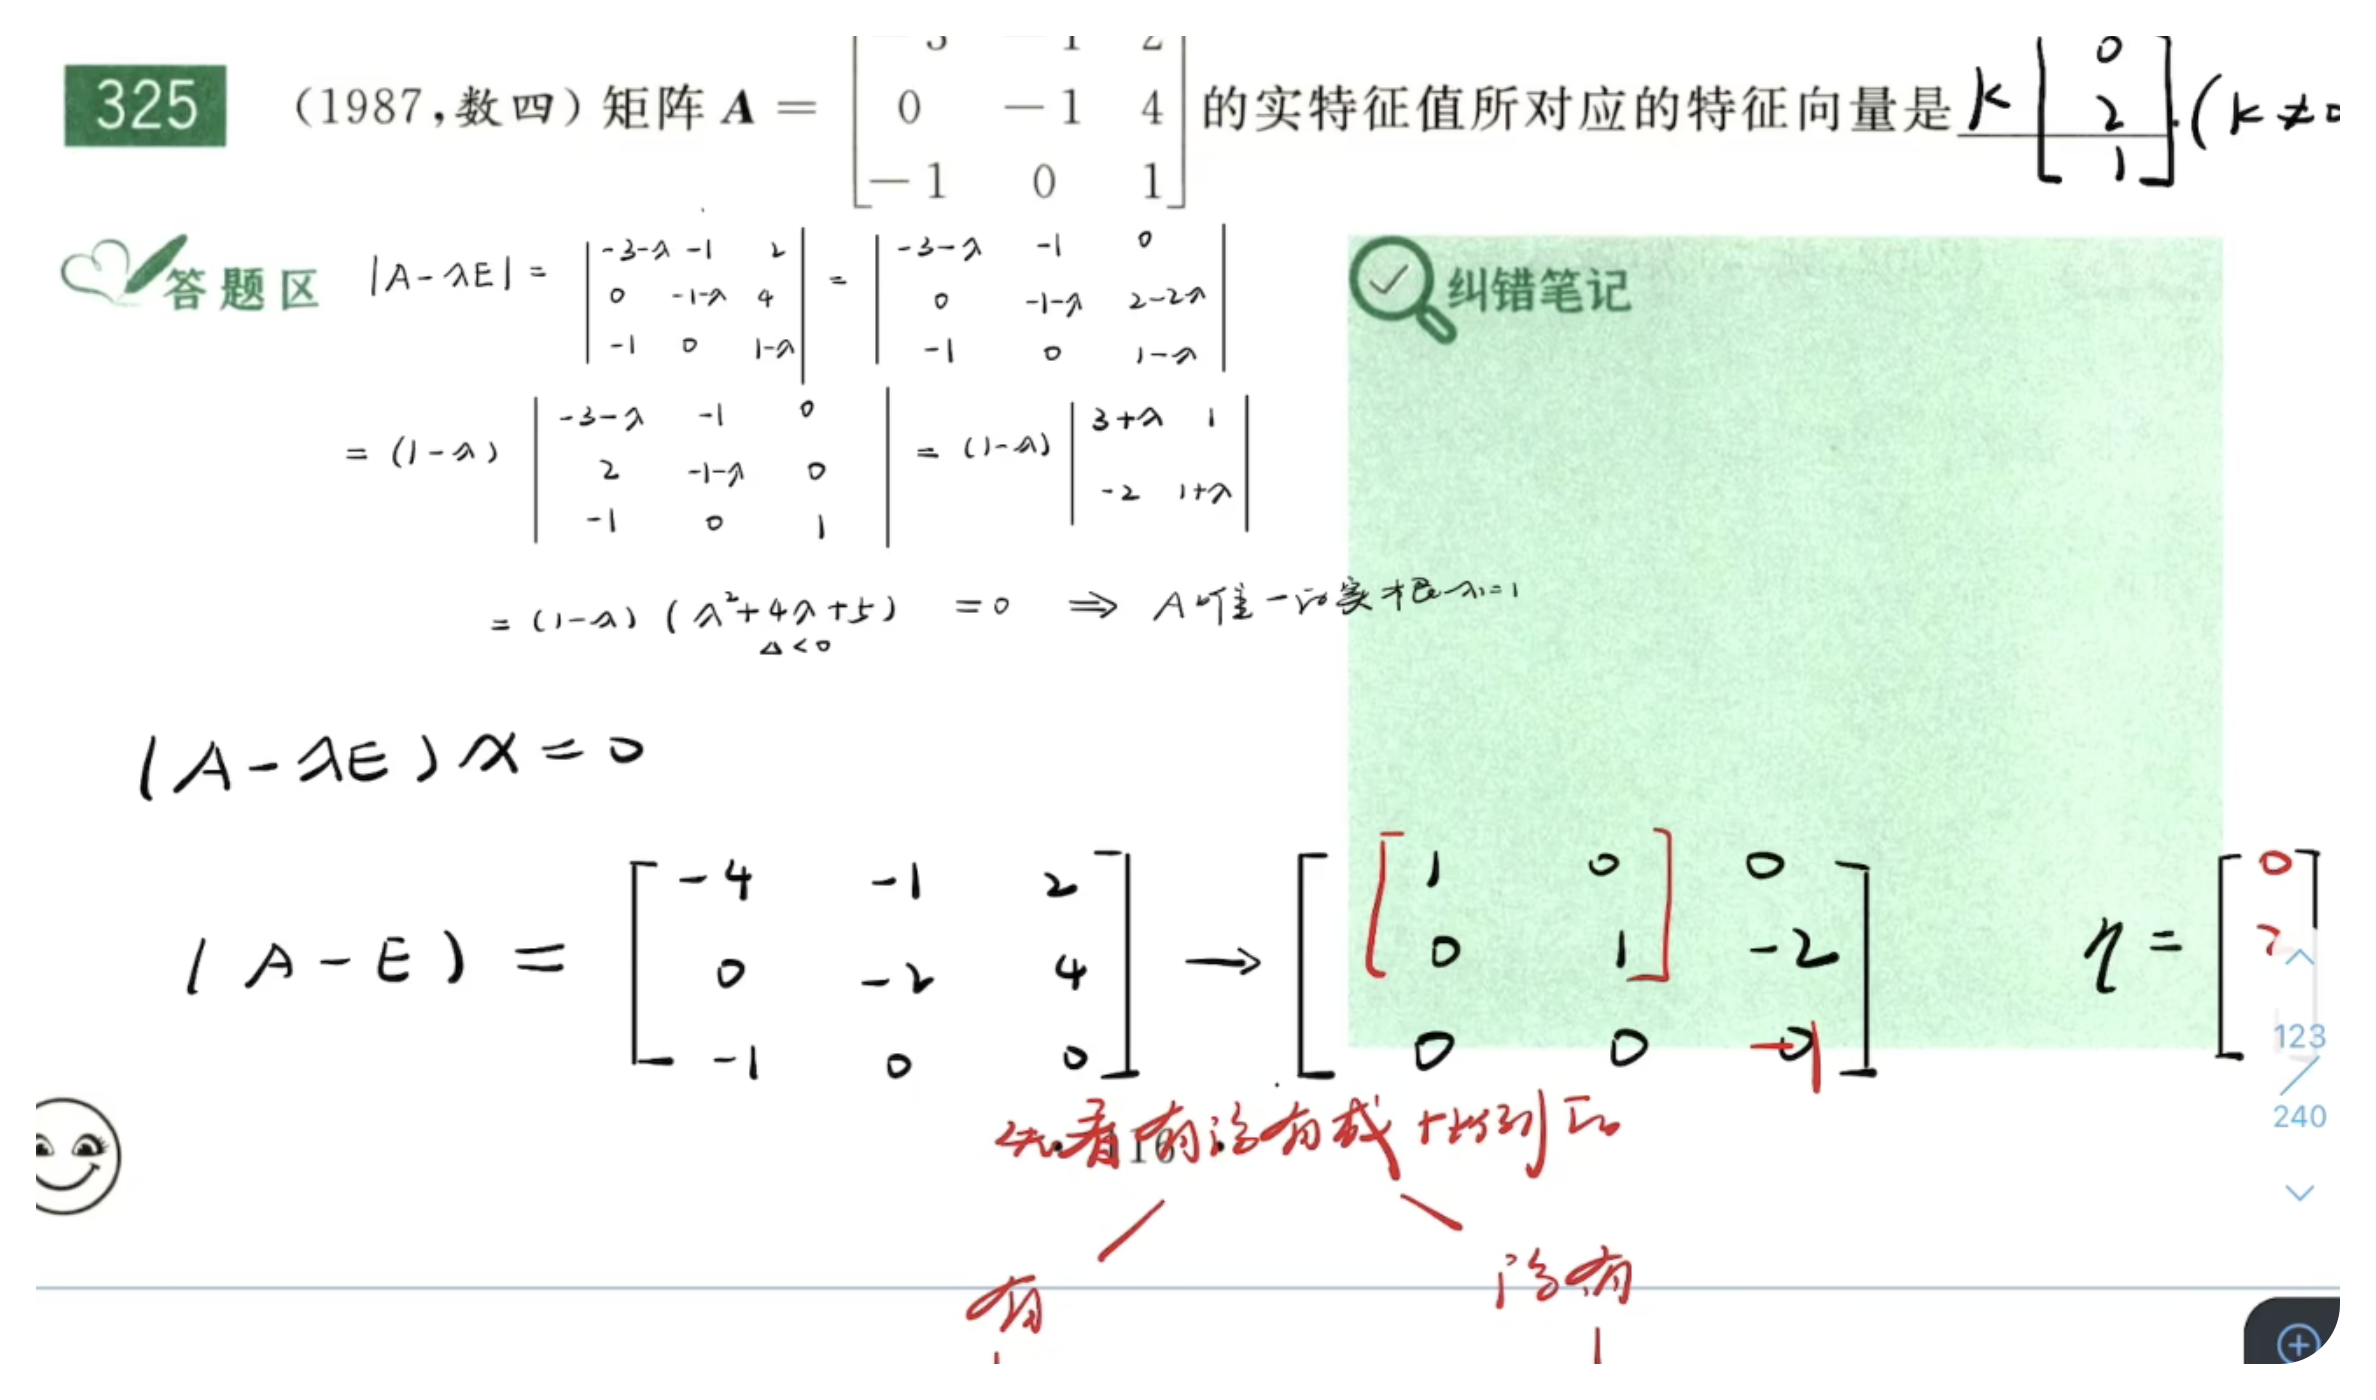 325 (1987,数四)矩阵 A = [-3 -1 2; 0 -1 4; -1 0 1] 的实特征值所对应的特征向量是 k[0 2 1].(k≠0
答题区
|A-λE| = |-3-λ -1 2; 0 -1-λ 4; -1 0 1-λ| = |-3-λ -1 0; 0 -1-λ 2-2λ; -1 0 1-λ|
纠错笔记
= (1-λ) |-3-λ -1 0; 2 -1-λ 0; -1 0 1| = (1-λ) |3+λ 1; -2 1+λ|
= (1-λ) (λ²+4λ+5) = 0 ⇒ A唯一的实根λ=1
Δ<0
(A-λE)x=0
(A-E) = [-4 -1 2; 0 -2 4; -1 0 0] → [1 0 0; 0 1 -2; 0 0 0] η = [0
123
240
116
先看有没有成比例的
有 没有